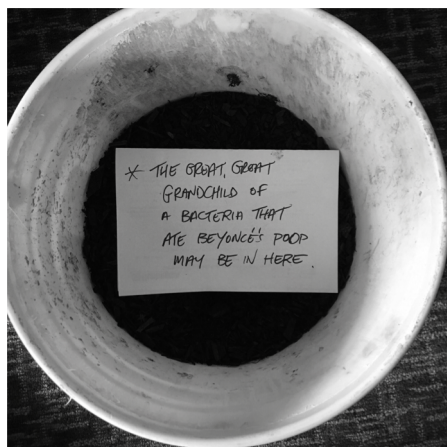 * THE GREAT, GREAT
GRANDCHILD OF
A BACTERIA THAT
ATE BEYONCÉ'S POOP
MAY BE IN HERE.